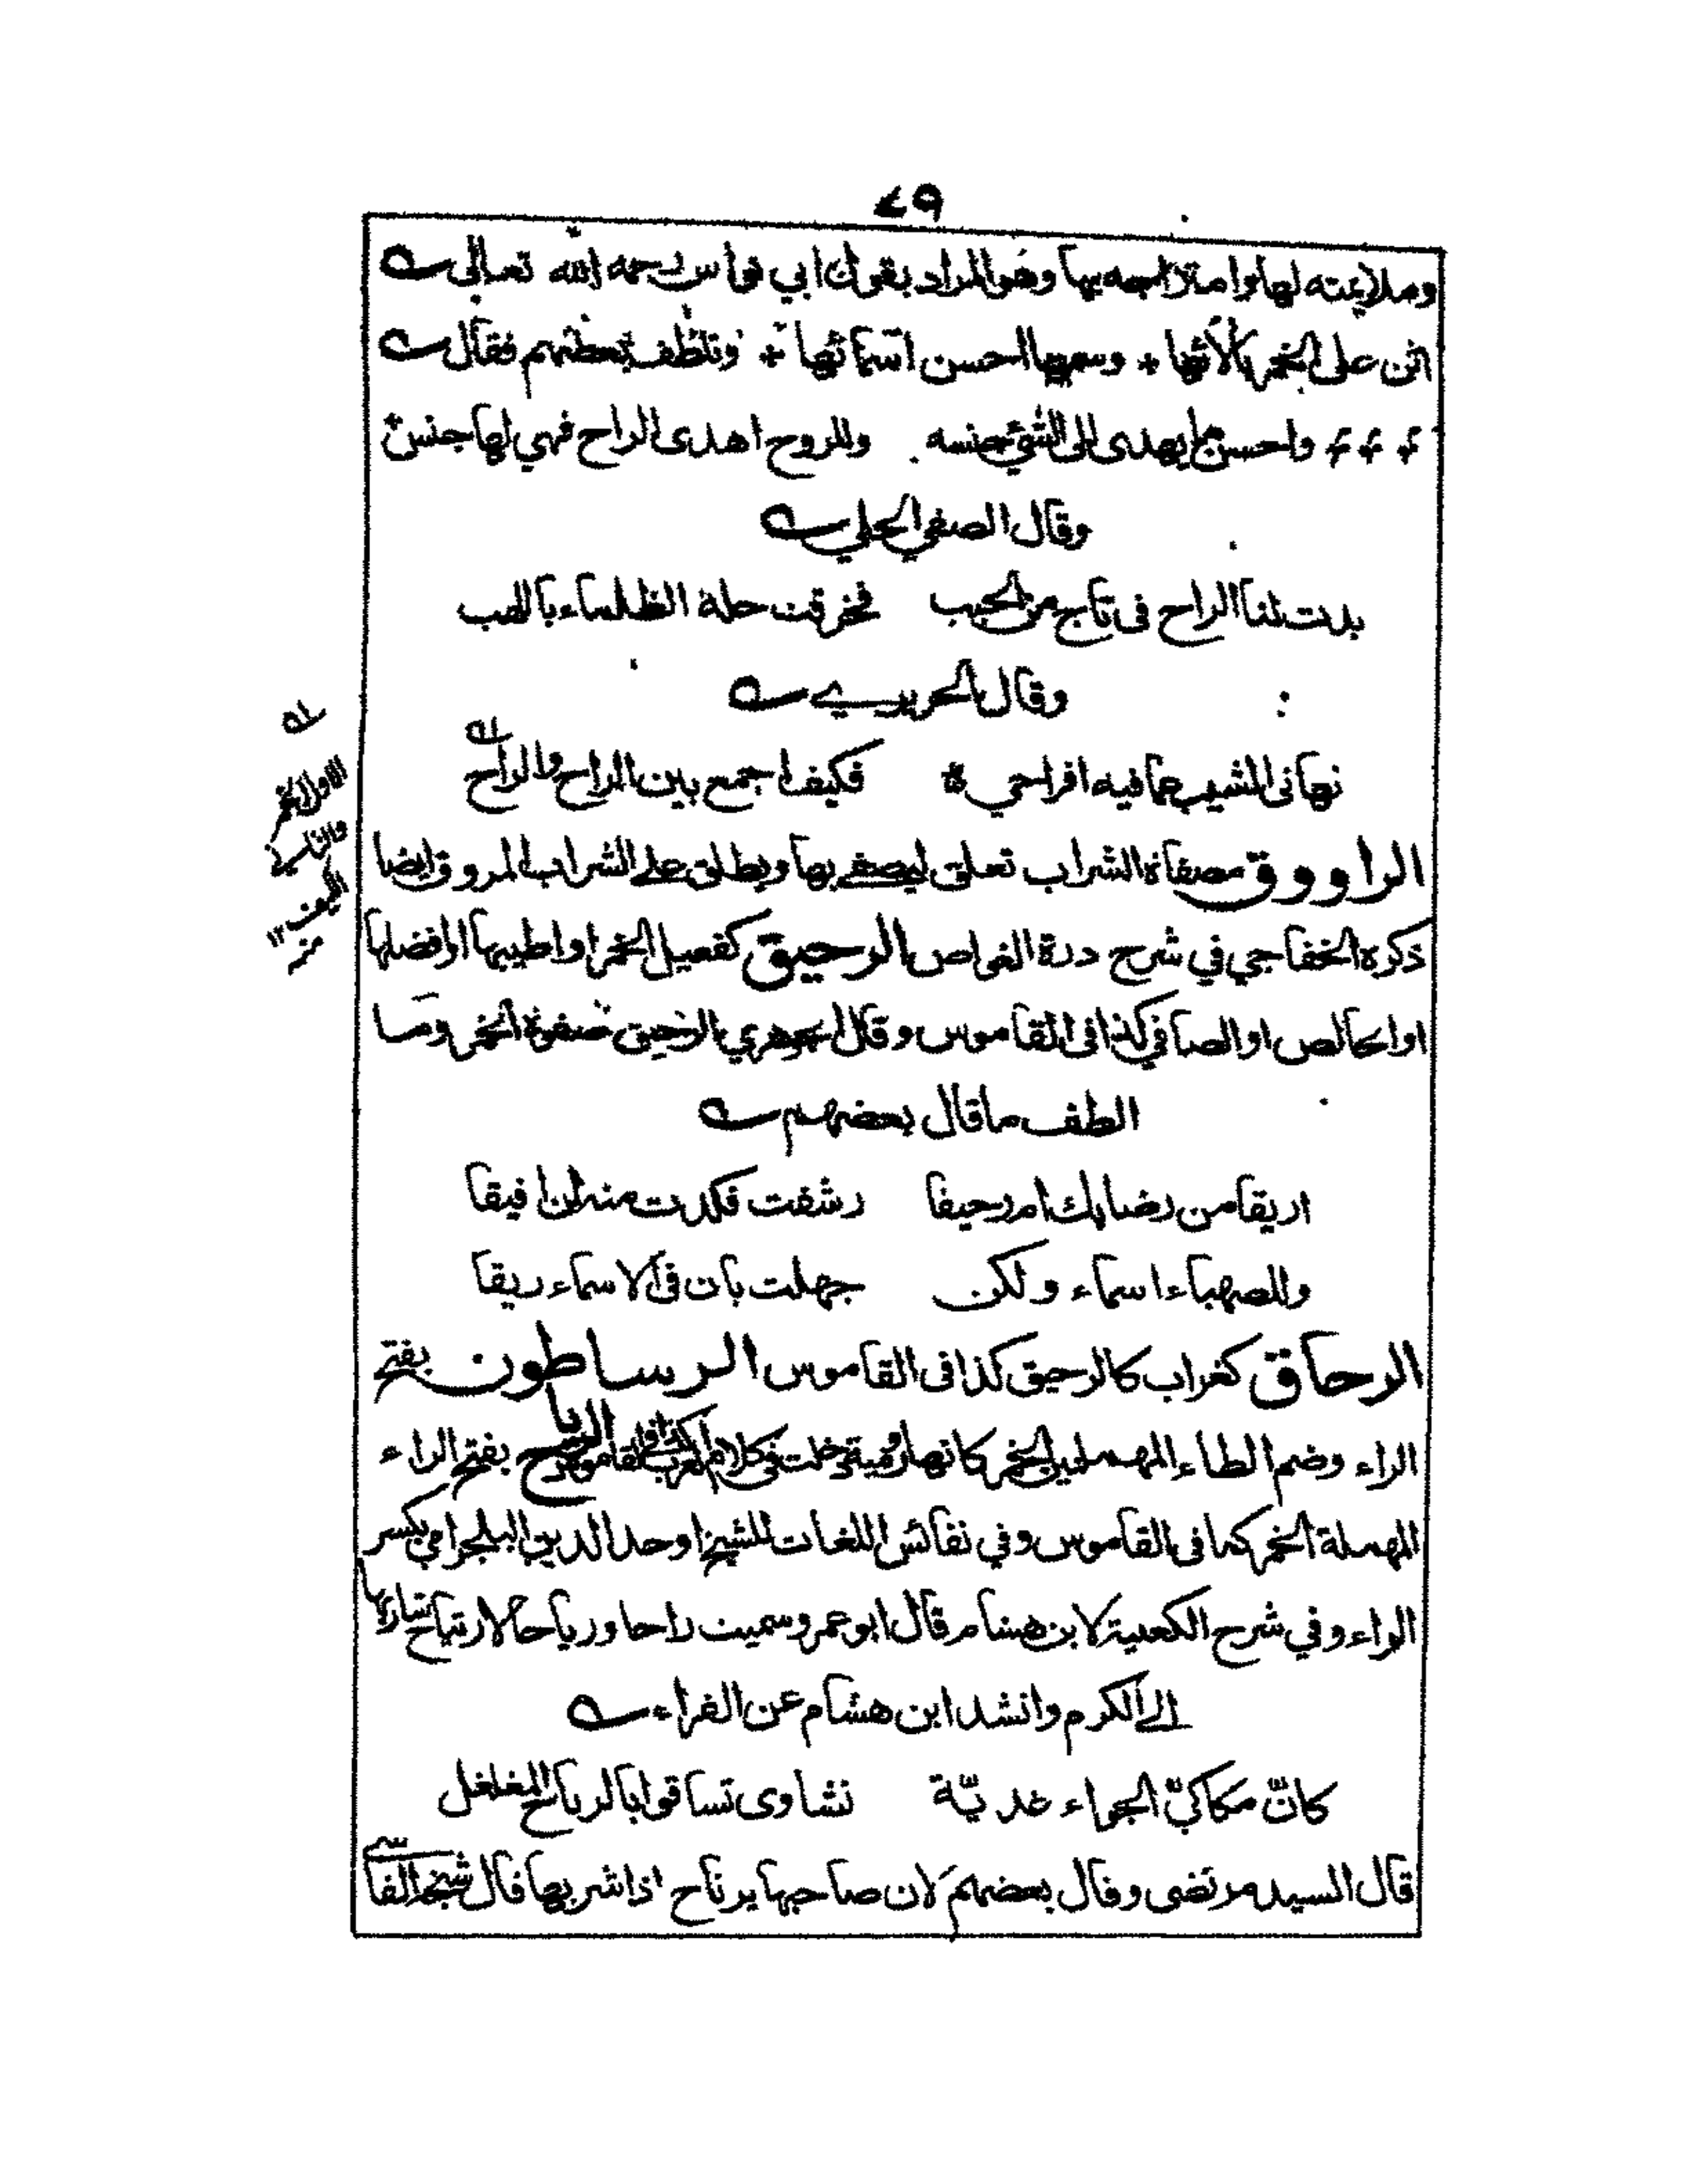 ٤٩
وملايمته لها وامتزاجه بها وهو المراد بقول ابي نواس رحمه الله تعالى
اثن على الخمر بآلائها * وسمها احسن اسمائها * وتلطف بعضهم فقال
واحسن ما يهدى الى الشيء جنسه وللروح اهدى الراح فهي لها جنس
وقال الصفي الحلي
بدت لنا الراح في تاج من الحبب فخرقت حلة الظلماء باللهب
وقال الحريري
نهاني المشيب عما فيه افراحي فكيف اجمع بين الراح والراح
الراووق مصفاة الشراب تعلق ليصفى بها ويطلق على الشراب المروق ايضا
ذكره الخفاجي في شرح درة الغواص الرحيق كفعيل الخمر او اطيبها او افضلها
او الخالص او الصافي كذا في القاموس وقال الجوهري الرحيق صفوة الخمر وما
الطف ما قال بعضهم
اريقا من رضابك ام رحيقا رشفت فكدت منه ان افيقا
وللصهباء اسماء ولكن جهلت بان في الاسماء ريقا
الرحاق كغراب كالرحيق كذا في القاموس الرساطون بفتح
الراء وضم الطاء المهملتين الخمر كانها رومية دخلت في كلام العرب كذا في القاموس الرياح بفتح الراء
المهملة الخمر كما في القاموس وفي نفائس اللغات للشيخ اوحد الدين البلجرامي بكسر
الراء وفي شرح الكعبية لابن هشام قال ابو عمرو سميت راحا ورياحا لارتياح شاربها
الى الكرم وانشد ابن هشام عن الفراء
كانّ مكاكيّ الجواء غديّة نشاوى تساقوا بالرياح المفلفل
قال السيد مرتضى وقال بعضهم لان صاحبها يرتاح اذا شربها قال شيخنا الفاسي
له
الاول الخمر
والثاني
الكف ١٢
منه